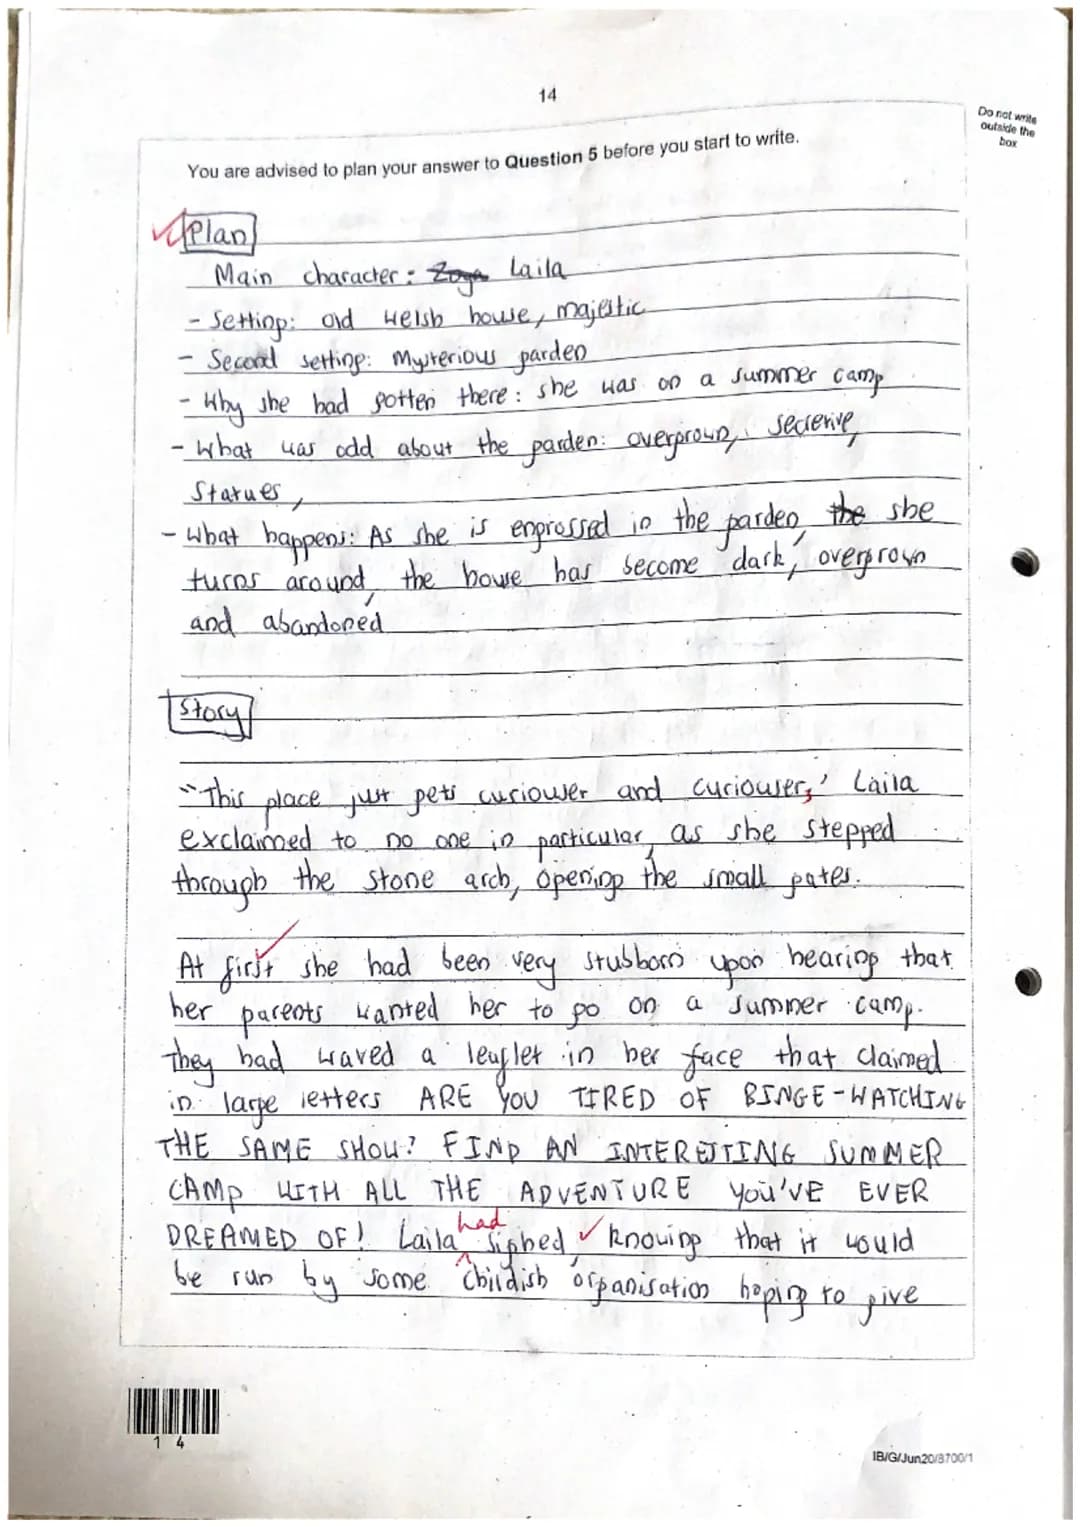 14
Do not write
outside the
box
You are advised to plan your answer to Question 5 before you start to write.
Plan
Main character: Zoya Laila
- Setting: old welsh house, majestic
- Second setting: Mysterious garden
- Why she had gotten there: she was on a summer camp
- What was odd about the garden: overgrown, secretive,
Statues,
- What happens: As she is engrossed in the garden, the she
turns around, the house has become dark, overgrown
and abandoned
Story
"This place just gets curiouser and curiouser,' Laila
exclaimed to no one in particular, as she stepped
through the stone arch, opening the small gates.
At first she had been very stubborn upon hearing that
her parents wanted her to go on a summer camp.
They had waved a leaflet in her face that claimed
in large letters ARE YOU TIRED OF BINGE-WATCHING
THE SAME SHOW? FIND AN INTERESTING SUMMER
CAMP WITH ALL THE ADVENTURE YOU'VE EVER
DREAMED OF! Laila had sighed, knowing that it would
be run by some childish organisation hoping to give
1 4
IB/G/Jun20/8700/1